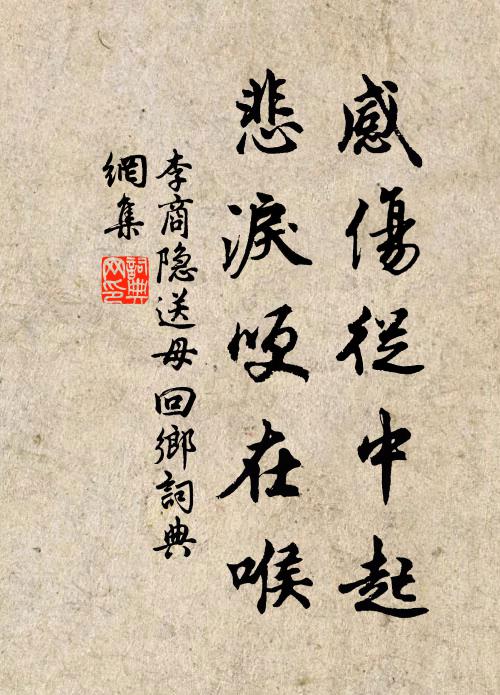 感傷從中起
悲淚哽在喉
李商隐送母回鄉詞典
網集
詞典
网印